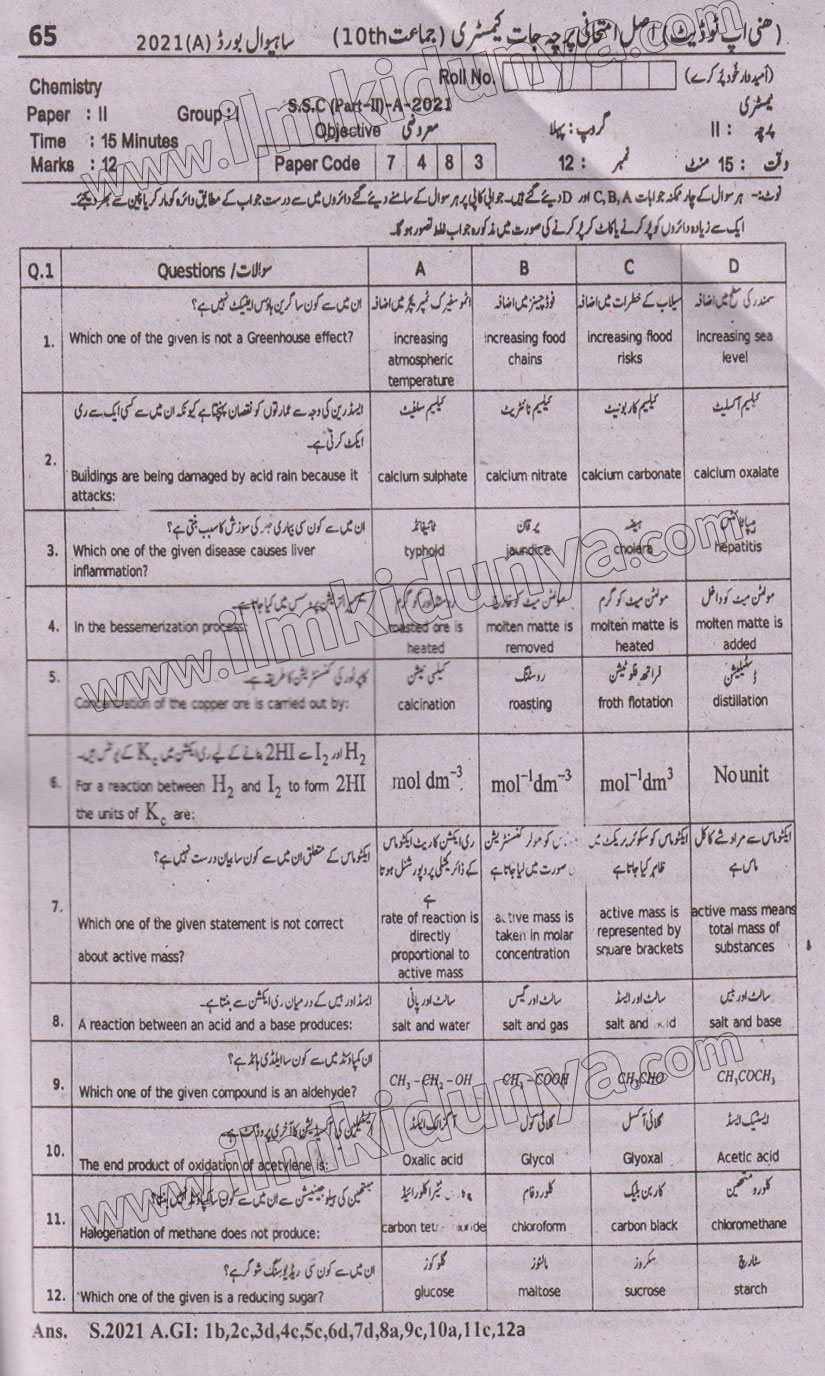 65 ساہیوال بورڈ 2021(A) (ھنی اپ ٹو ڈیٹ) اصل امتحانی پرچہ جات کیمسٹری (جماعت 10th)
Roll No. (امیدوار خود پُر کرے)
Chemistry S.S.C (Part-II)-A-2021 کیمسٹری
Paper : II Group: I Objective معروضی گروپ: پہلا پرچہ : II
Time : 15 Minutes
Marks : 12 Paper Code 7 4 8 3 نمبر : 12 وقت : 15 منٹ
نوٹ:- ہر سوال کے چار ممکنہ جوابات C,B,A اور D دیئے گئے ہیں۔ جوابی کاپی پر ہر سوال کے سامنے دیئے گئے دائروں میں سے درست جواب کے مطابق دائرہ کو مارکر یا پین سے بھر دیجئے۔
ایک سے زیادہ دائروں کو پُر کرنے یا کاٹ کر پُر کرنے کی صورت میں مذکورہ جواب غلط تصور ہوگا۔
Q.1 Questions / سوالات A B C D
ان میں سے کون سا گرین ہاؤس ایفیکٹ نہیں ہے؟ اٹموسفیرک ٹمپریچر میں اضافہ فوڈ چینز میں اضافہ سیلاب کے خطرات میں اضافہ سمندر کی سطح میں اضافہ
1. Which one of the given is not a Greenhouse effect? increasing atmospheric temperature increasing food chains increasing flood risks increasing sea level
ایسڈ رین کی وجہ سے عمارتوں کو نقصان پہنچتا ہے کیونکہ ان میں سے کسی ایک سے ری ایکٹ کرتی ہے۔ کیلسیم سلفیٹ کیلسیم نائٹریٹ کیلسیم کاربونیٹ کیلسیم آگزلیٹ
2. Buildings are being damaged by acid rain because it attacks: calcium sulphate calcium nitrate calcium carbonate calcium oxalate
ان میں سے کون سی بیماری جگر کی سوزش کا سبب بنتی ہے؟ ٹائیفائڈ یرقان ہیضہ ہیپاٹائٹس
3. Which one of the given disease causes liver inflammation? typhoid jaundice cholera hepatitis
مولٹن میٹ کو گرم مولٹن میٹ کو داخل
4. In the bessemerization process: roasted ore is heated molten matte is removed molten matte is heated molten matte is added
کاپر اور کی کنسنٹریشن کا طریقہ ہے۔ کیلسی نیشن روسٹنگ فراتھ فلوٹیشن ڈسٹیلیشن
5. Concentration of the copper ore is carried out by: calcination roasting froth flotation distillation
H₂ اور I₂ سے 2HI بنانے کے لیے ری ایکشن میں K꜀ کے یونٹس ہیں۔
6. For a reaction between H₂ and I₂ to form 2HI the units of K꜀ are: mol dm⁻³ mol⁻¹dm⁻³ mol⁻¹dm³ No unit
ایکٹو ماس کے متعلق ان میں سے کون سا بیان درست نہیں ہے؟ ری ایکشن کا ریٹ ایکٹو ماس کے ڈائریکٹلی پروپورشنل ہوتا ہے کو مولر کنسنٹریشن صورت میں لیا جاتا ہے ایکٹو ماس کو سکوئر بریکٹ میں ظاہر کیا جاتا ہے ایکٹو ماس سے مراد شے کا کل ماس ہے
7. Which one of the given statement is not correct about active mass? rate of reaction is directly proportional to active mass active mass is taken in molar concentration active mass is represented by square brackets active mass means total mass of substances
ایسڈ اور بیس کے درمیان ری ایکشن سے بنتا ہے۔ سالٹ اور پانی سالٹ اور گیس سالٹ اور ایسڈ سالٹ اور بیس
8. A reaction between an acid and a base produces: salt and water salt and gas salt and acid salt and base
ان کمپاؤنڈ میں سے کون سا ایلڈی ہائڈ ہے؟
9. Which one of the given compound is an aldehyde? CH₃ – CH₂ – OH CH₃ – COOH CH₃CHO CH₃COCH₃
ایسیٹیلین کی آکسیڈیشن کا آخری پروڈکٹ ہے۔ آگزالک ایسڈ گلائی کول گلائی آکسل ایسیٹک ایسڈ
10. The end product of oxidation of acetylene is: Oxalic acid Glycol Glyoxal Acetic acid
میتھین کی ہیلوجینیشن سے ان میں سے کون سا کمپاؤنڈ نہیں بنتا؟ ٹیٹرا کلورائیڈ کلوروفام کاربن بلیک کلورومیتھین
11. Halogenation of methane does not produce: carbon tetrachloride chloroform carbon black chloromethane
ان میں سے کون سی ریڈیوسنگ شوگر ہے؟ گلوکوز مالٹوز سکروز سٹارچ
12. Which one of the given is a reducing sugar? glucose maltose sucrose starch
Ans. S.2021 A.GI: 1b,2c,3d,4c,5c,6d,7d,8a,9c,10a,11c,12a
www.ilmkidunya.com
www.ilmkidunya.com
www.ilmkidunya.com